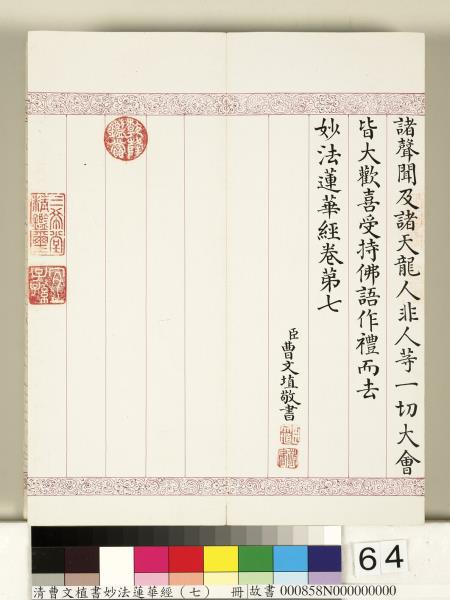 諸聲聞及諸天龍人非人等一切大會
皆大歡喜受持佛語作禮而去
妙法蓮華經卷第七
臣曹文埴敬書
乾隆鑑賞
三希堂精鑑璽
宜子孫
64
清曹文埴書妙法蓮華經（七） 冊 故書 000858N000000000